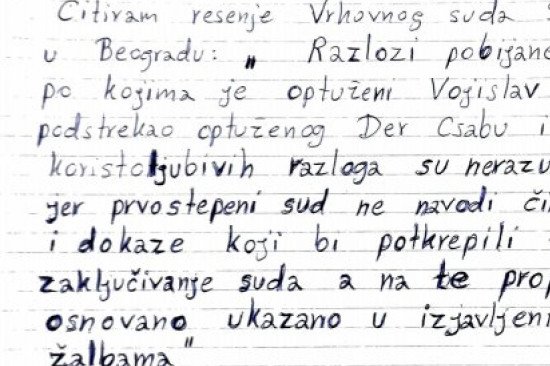 Citiram resenje Vrhovnog suda
u Beogradu: „ Razlozi pobijane
po kojima je optuženi Vojislav
podstrekao optuženog Der Csabu i
koristoljubivih razloga su nerazu
jer prvostepeni sud ne navodi či
i dokaze koji bi potkrepili
zaključivanje suda a na te prop
osnovano ukazano u izjavljeni
žalbama"